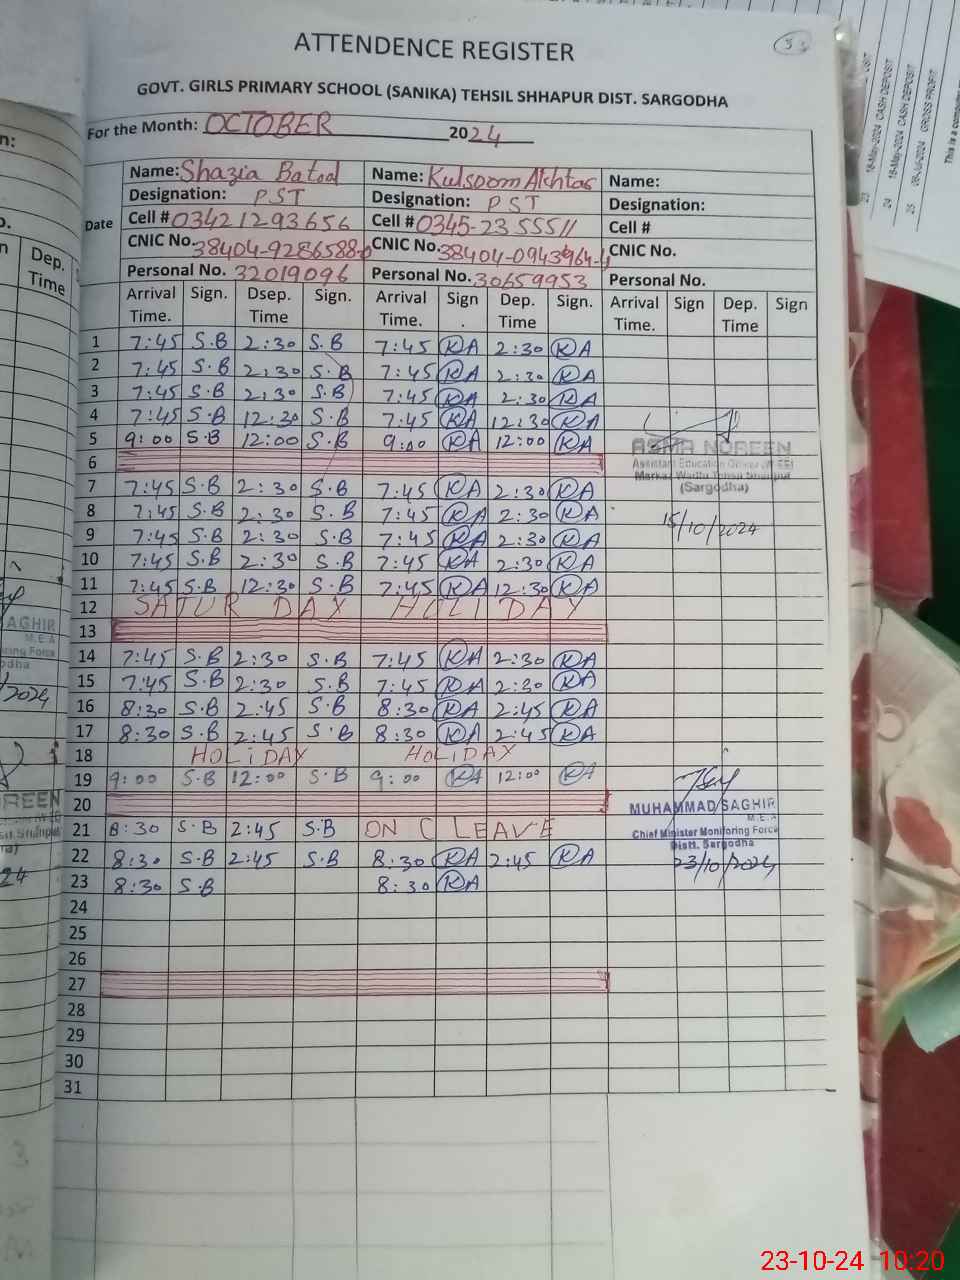 ATTENDENCE REGISTER
53
GOVT. GIRLS PRIMARY SCHOOL (SANIKA) TEHSIL SHHAPUR DIST. SARGODHA
For the Month: OCTOBER 2024
Date
Name: Shazia Batool Name: Kulsoom Akhtar Name:
Designation: PST Designation: PST Designation:
Cell # 03421293656 Cell # 0345-2355511 Cell #
CNIC No. 38404-9286588-0 CNIC No. CNIC No.
Personal No. 32019096 Personal No. 30659953 Personal No.
Arrival Time. Sign. Dsep. Time Sign. Arrival Time. Sign . Dep. Time Sign. Arrival Time. Sign Dep. Time Sign
1 7:45 S.B 2:30 S.B 7:45 KA 2:30 KA
2 7:45 S.B 2:30 S.B 7:45 KA 2:30 KA
3 7:45 S.B 2:30 S.B 7:45 KA 2:30 KA
4 7:45 S.B 12:30 S.B 7:45 KA 12:30 KA
5 9:00 S.B 12:00 S.B 9:00 KA 12:00 KA
6
7 7:45 S.B 2:30 S.B 7:45 KA 2:30 KA
8 7:45 S.B 2:30 S.B 7:45 KA 2:30 KA
9 7:45 S.B 2:30 S.B 7:45 KA 2:30 KA
10 7:45 S.B 2:30 S.B 7:45 KA 2:30 KA
11 7:45 S.B 12:30 S.B 7:45 KA 12:30 KA
12 SATUR DAY HOLIDAY
13
14 7:45 S.B 2:30 S.B 7:45 KA 2:30 KA
15 7:45 S.B 2:30 S.B 7:45 KA 2:30 KA
16 8:30 S.B 2:45 S.B 8:30 KA 2:45 KA
17 8:30 S.B 2:45 S.B 8:30 KA 2:45 KA
18 HOLIDAY HOLIDAY
19 9:00 S.B 12:00 S.B 9:00 KA 12:00 KA
20
21 8:30 S.B 2:45 S.B ON C LEAVE
22 8:30 S.B 2:45 S.B 8:30 KA 2:45 KA
23 8:30 S.B 8:30 KA
24
25
26
27
28
29
30
31
ASMA NOREEN
Assistant Education Officer (W-EE)
Markaz Wadhi Tehsil Shahpur
(Sargodha)
15/10/2024
MUHAMMAD SAGHIR
M.E.A
Chief Minister Monitoring Force
Distt. Sargodha
23/10/2024
n:
o.
Dep.
Time
AGHIR
M.E.A
oring Force
odha
/2024
OREEN
24
23 18-May-2024 CASH DEPOSIT
24 18-May-2024 CASH DEPOSIT
25 GROSS PROFIT
This is a computer
23-10-24 10:20